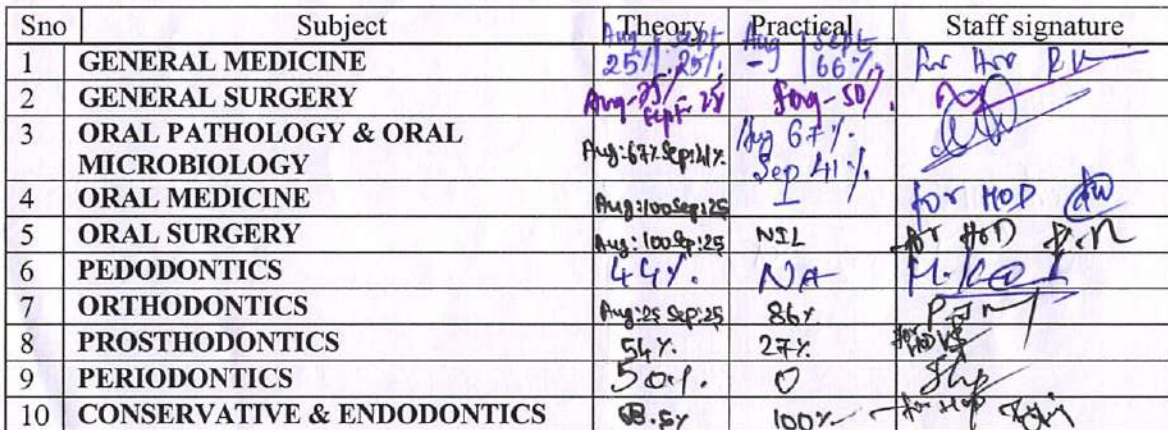 Sno Subject Theory Practical Staff signature
Aug Sept Aug Sept
1 GENERAL MEDICINE 25% 25% - 66% for HOD
2 GENERAL SURGERY Aug-25% Sept-25 Aug-50%
3 ORAL PATHOLOGY & ORAL MICROBIOLOGY Aug:67% Sep:41% Aug 67% Sep 41%
4 ORAL MEDICINE Aug:100 Sep:25 - for HOD
5 ORAL SURGERY Aug:100 Sep:25 NIL for HOD
6 PEDODONTICS 44% NA
7 ORTHODONTICS Aug:25 Sep:25 86%
8 PROSTHODONTICS 54% 27% for HOD
9 PERIODONTICS 50% 0
10 CONSERVATIVE & ENDODONTICS 100% for HOD